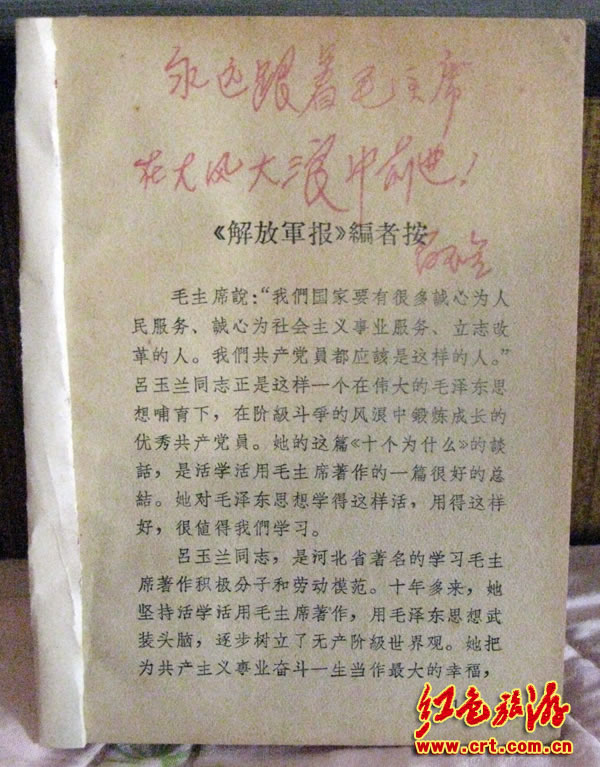 永远跟着毛主席
在大风大浪中前进！
《解放軍报》編者按
毛主席說：“我們国家要有很多誠心为人
民服务、誠心为社会主义事业服务、立志改
革的人。我們共产党員都应該是这样的人。”
呂玉兰同志正是这样一个在伟大的毛泽东思
想哺育下，在阶級斗爭的风浪中鍛炼成长的
优秀共产党員。她的这篇《十个为什么》的談
話，是活学活用毛主席著作的一篇很好的总
結。她对毛泽东思想学得这样活，用得这样
好，很値得我們学习。
呂玉兰同志，是河北省著名的学习毛主
席著作积极分子和劳动模范。十年多来，她
坚持活学活用毛主席著作，用毛泽东思想武
装头脑，逐步树立了无产阶級世界观。她把
为共产主义事业奋斗一生当作最大的幸福，
红色旅游
www.crt.com.cn